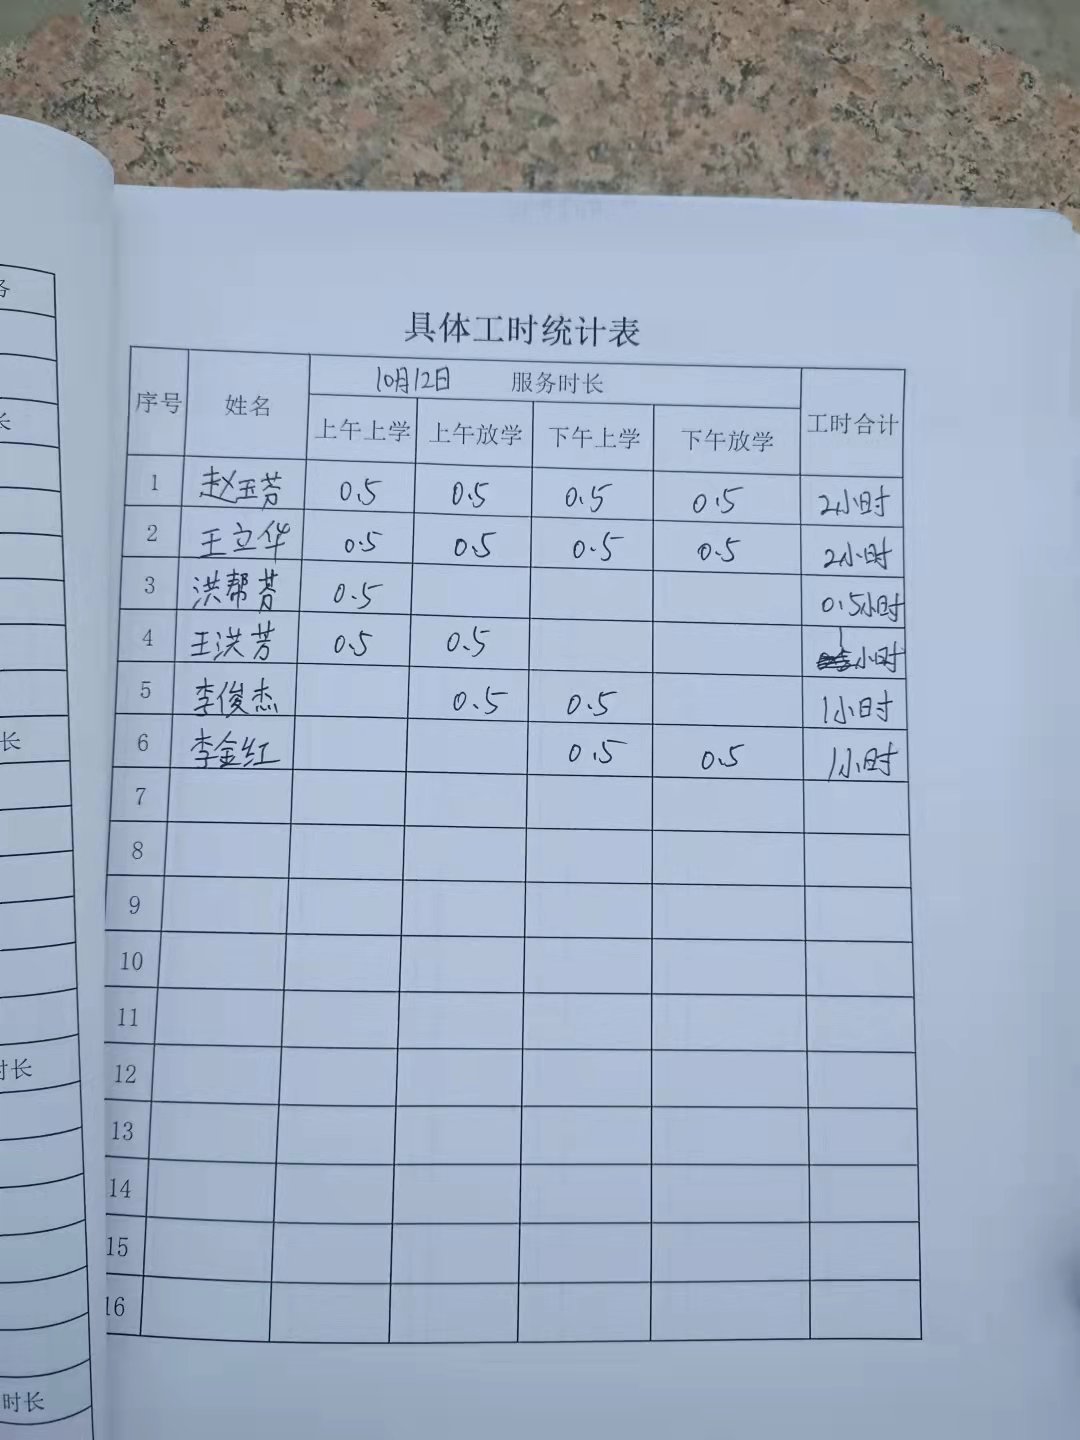 具体工时统计表
序号 姓名 10月12日 服务时长 工时合计
上午上学 上午放学 下午上学 下午放学
1 赵玉芳 0.5 0.5 0.5 0.5 2小时
2 王立华 0.5 0.5 0.5 0.5 2小时
3 洪帮芬 0.5 0.5小时
4 王洪芳 0.5 0.5 1小时
5 李俊杰 0.5 0.5 1小时
6 李金红 0.5 0.5 1小时
7
8
9
10
11
12
13
14
15
16
务
长
长
时长
时长